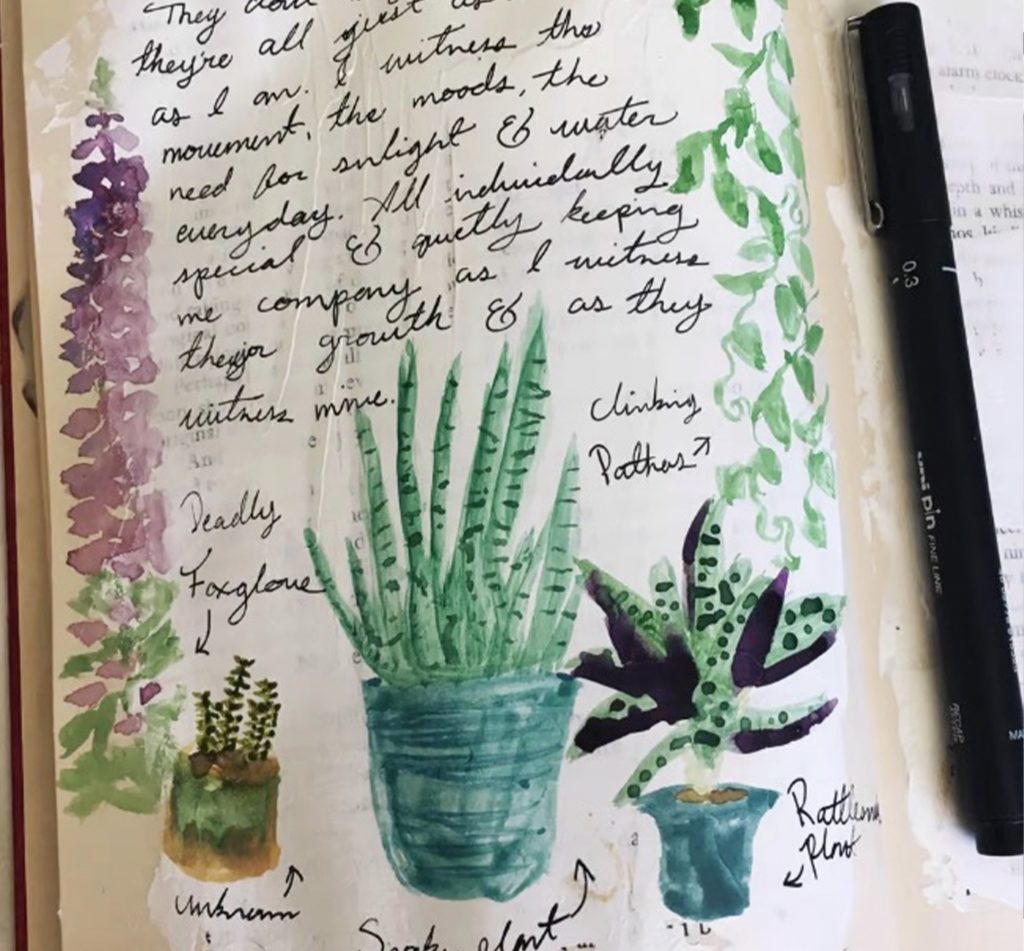 They don't
they're all just as
as I am. I witness the
movement, the moods, the
need for sunlight & water
everyday. All individually
special & quietly keeping
me company as I witness
their growth & as they
witness mine.
Climbing
Pathos
Deadly
Foxglove
Rattlesnake
Plant
unknown
Snake plant
0.3
uni pin FINE LINE
alarm clock
epth and
in a whis